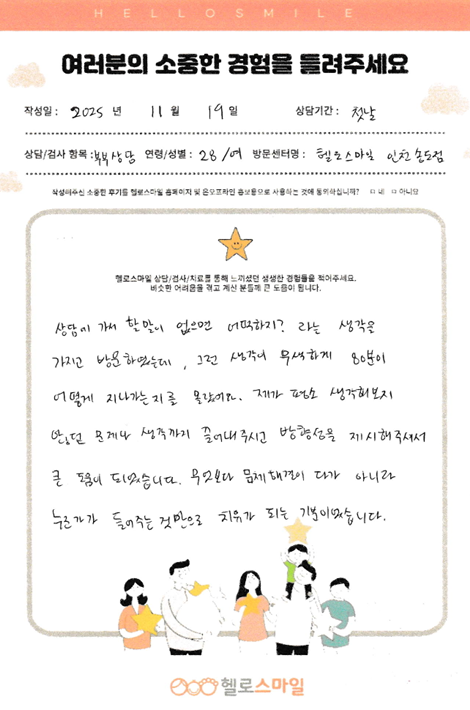 HELLOSMILE
여러분의 소중한 경험을 들려주세요
작성일 : 2025 년 11 월 19 일 상담기간 : 첫날
상담/검사 항목 : 부부상담 연령/성별 : 28 / 여 방문센터명 : 헬로스마일 인천 송도점
작성해주신 소중한 후기를 헬로스마일 홈페이지 및 온오프라인 홍보용으로 사용하는 것에 동의하십니까? □ 네 □ 아니요
헬로스마일 상담/검사/치료를 통해 느끼셨던 생생한 경험들을 적어주세요.
비슷한 어려움을 겪고 계신 분들께 큰 도움이 됩니다.
상담에 가서 할말이 없으면 어떡하지? 라는 생각을
가지고 방문하였는데, 그런 생각이 무색하게 80분이
어떻게 지나가는지를 몰랐어요. 제가 평소 생각해보지
않던 문제나 생각까지 끌어내주시고 방향성을 제시해주셔서
큰 도움이 되었습니다. 무엇보다 문제해결이 다가 아니라
누군가가 들어주는 것만으로 치유가 되는 기분이었습니다.
헬로스마일